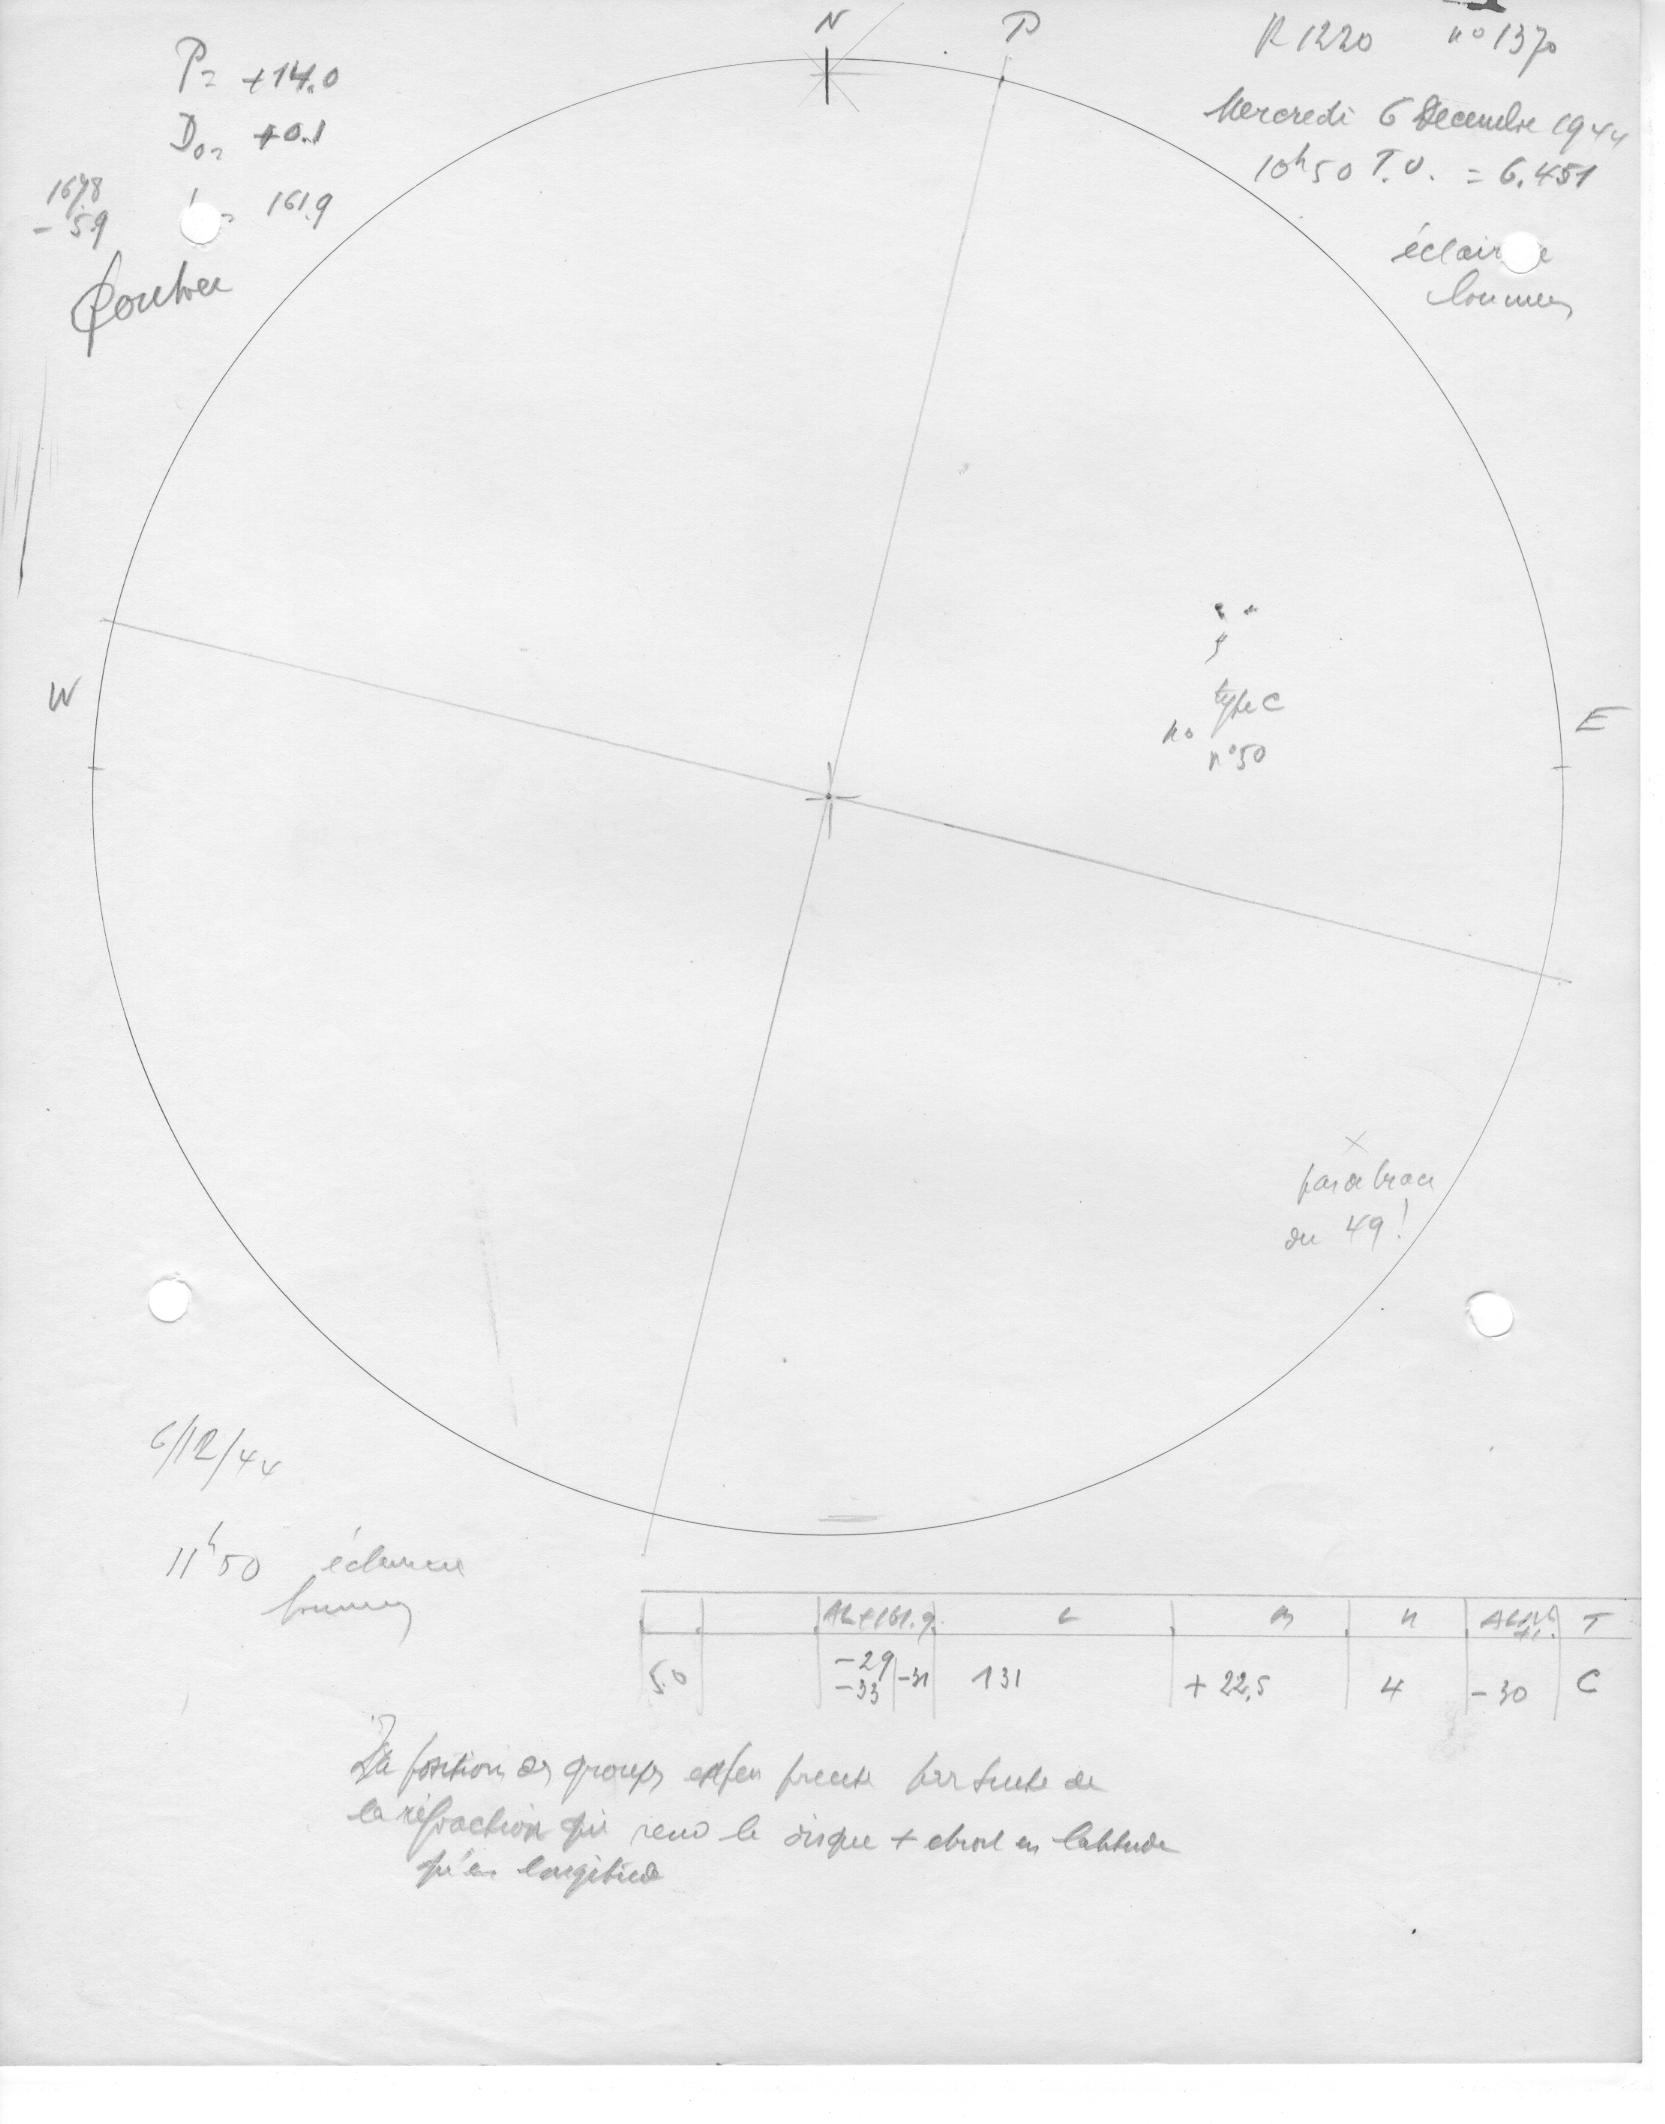 N
P
P= +14.0
D₀= +0.1
167.8
- 5.9
= 161.9
R 1220 n° 1370
Mercredi 6 Decembre 1944
10h50 T.U. = 6.451
W
E
type C
n° 50
pas de trace
du 49!
6/12/44
11h50
AL+161.9 L B n T
50 -29 -33 -31 131 +22,5 4 -30 C
La position des groupes est peu precise par suite de
la réfraction qui rend le disque + étroit en latitude
qu'en longitude